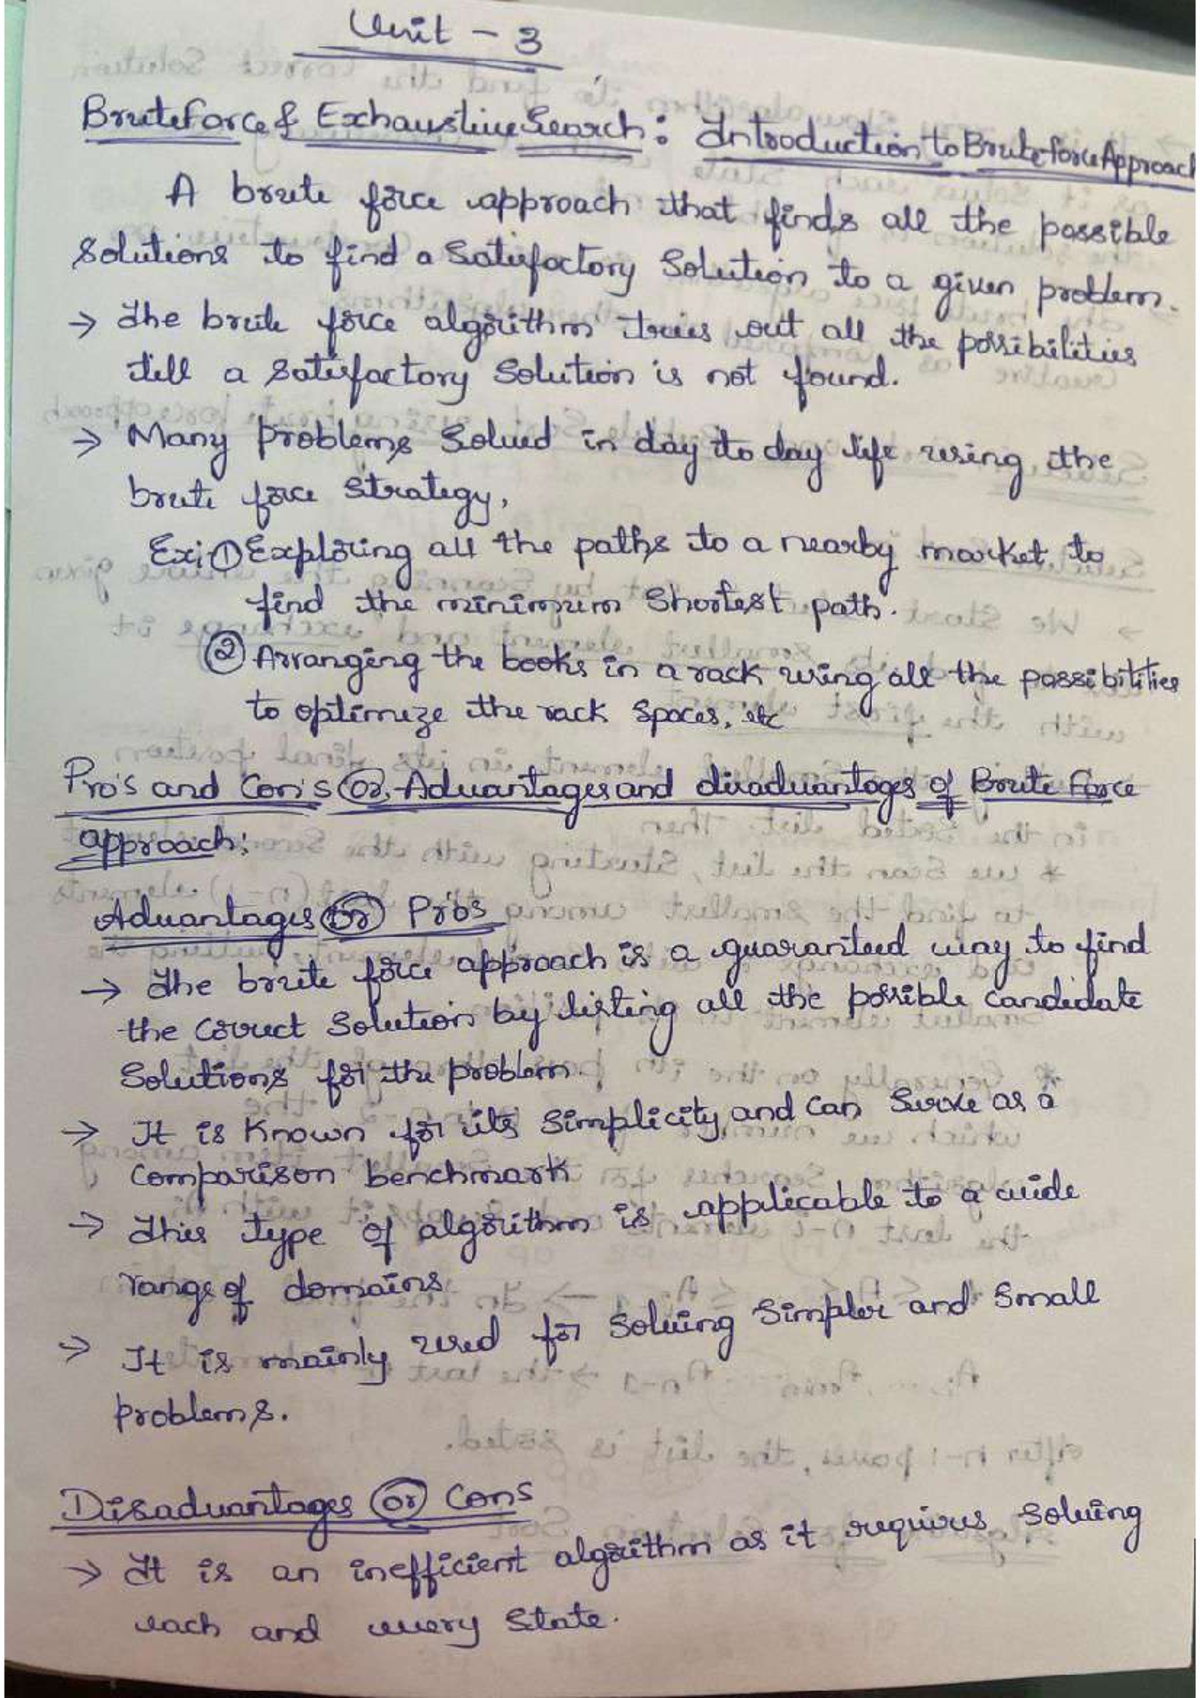 Unit - 3
Brute Force & Exhaustive Search : Introduction to Brute force Approach
A brute force approach that finds all the possible
Solutions to find a Satisfactory Solution to a given problem.
→ The brute force algorithm tries out all the possibilities
till a satisfactory solution is not found.
→ Many problems solved in day to day life using the
brute force strategy,
Ex: ① Exploring all the paths to a nearby market to
find the minimum shortest path.
② Arranging the books in a rack using all the possibilities
to optimize the rack spaces, etc
Pro's and Con's (or) Advantages and disadvantages of Brute Force
approach:
Advantages (or) Pro's
→ The brute force approach is a guaranteed way to find
the correct solution by listing all the possible candidate
Solutions for the problem.
→ It is known for its simplicity and can serve as a
comparison benchmark
→ This type of algorithm is applicable to a wide
range of domains
→ It is mainly used for solving simpler and small
problems.
Disadvantages (or) Cons
→ It is an inefficient algorithm as it requires solving
each and every state.